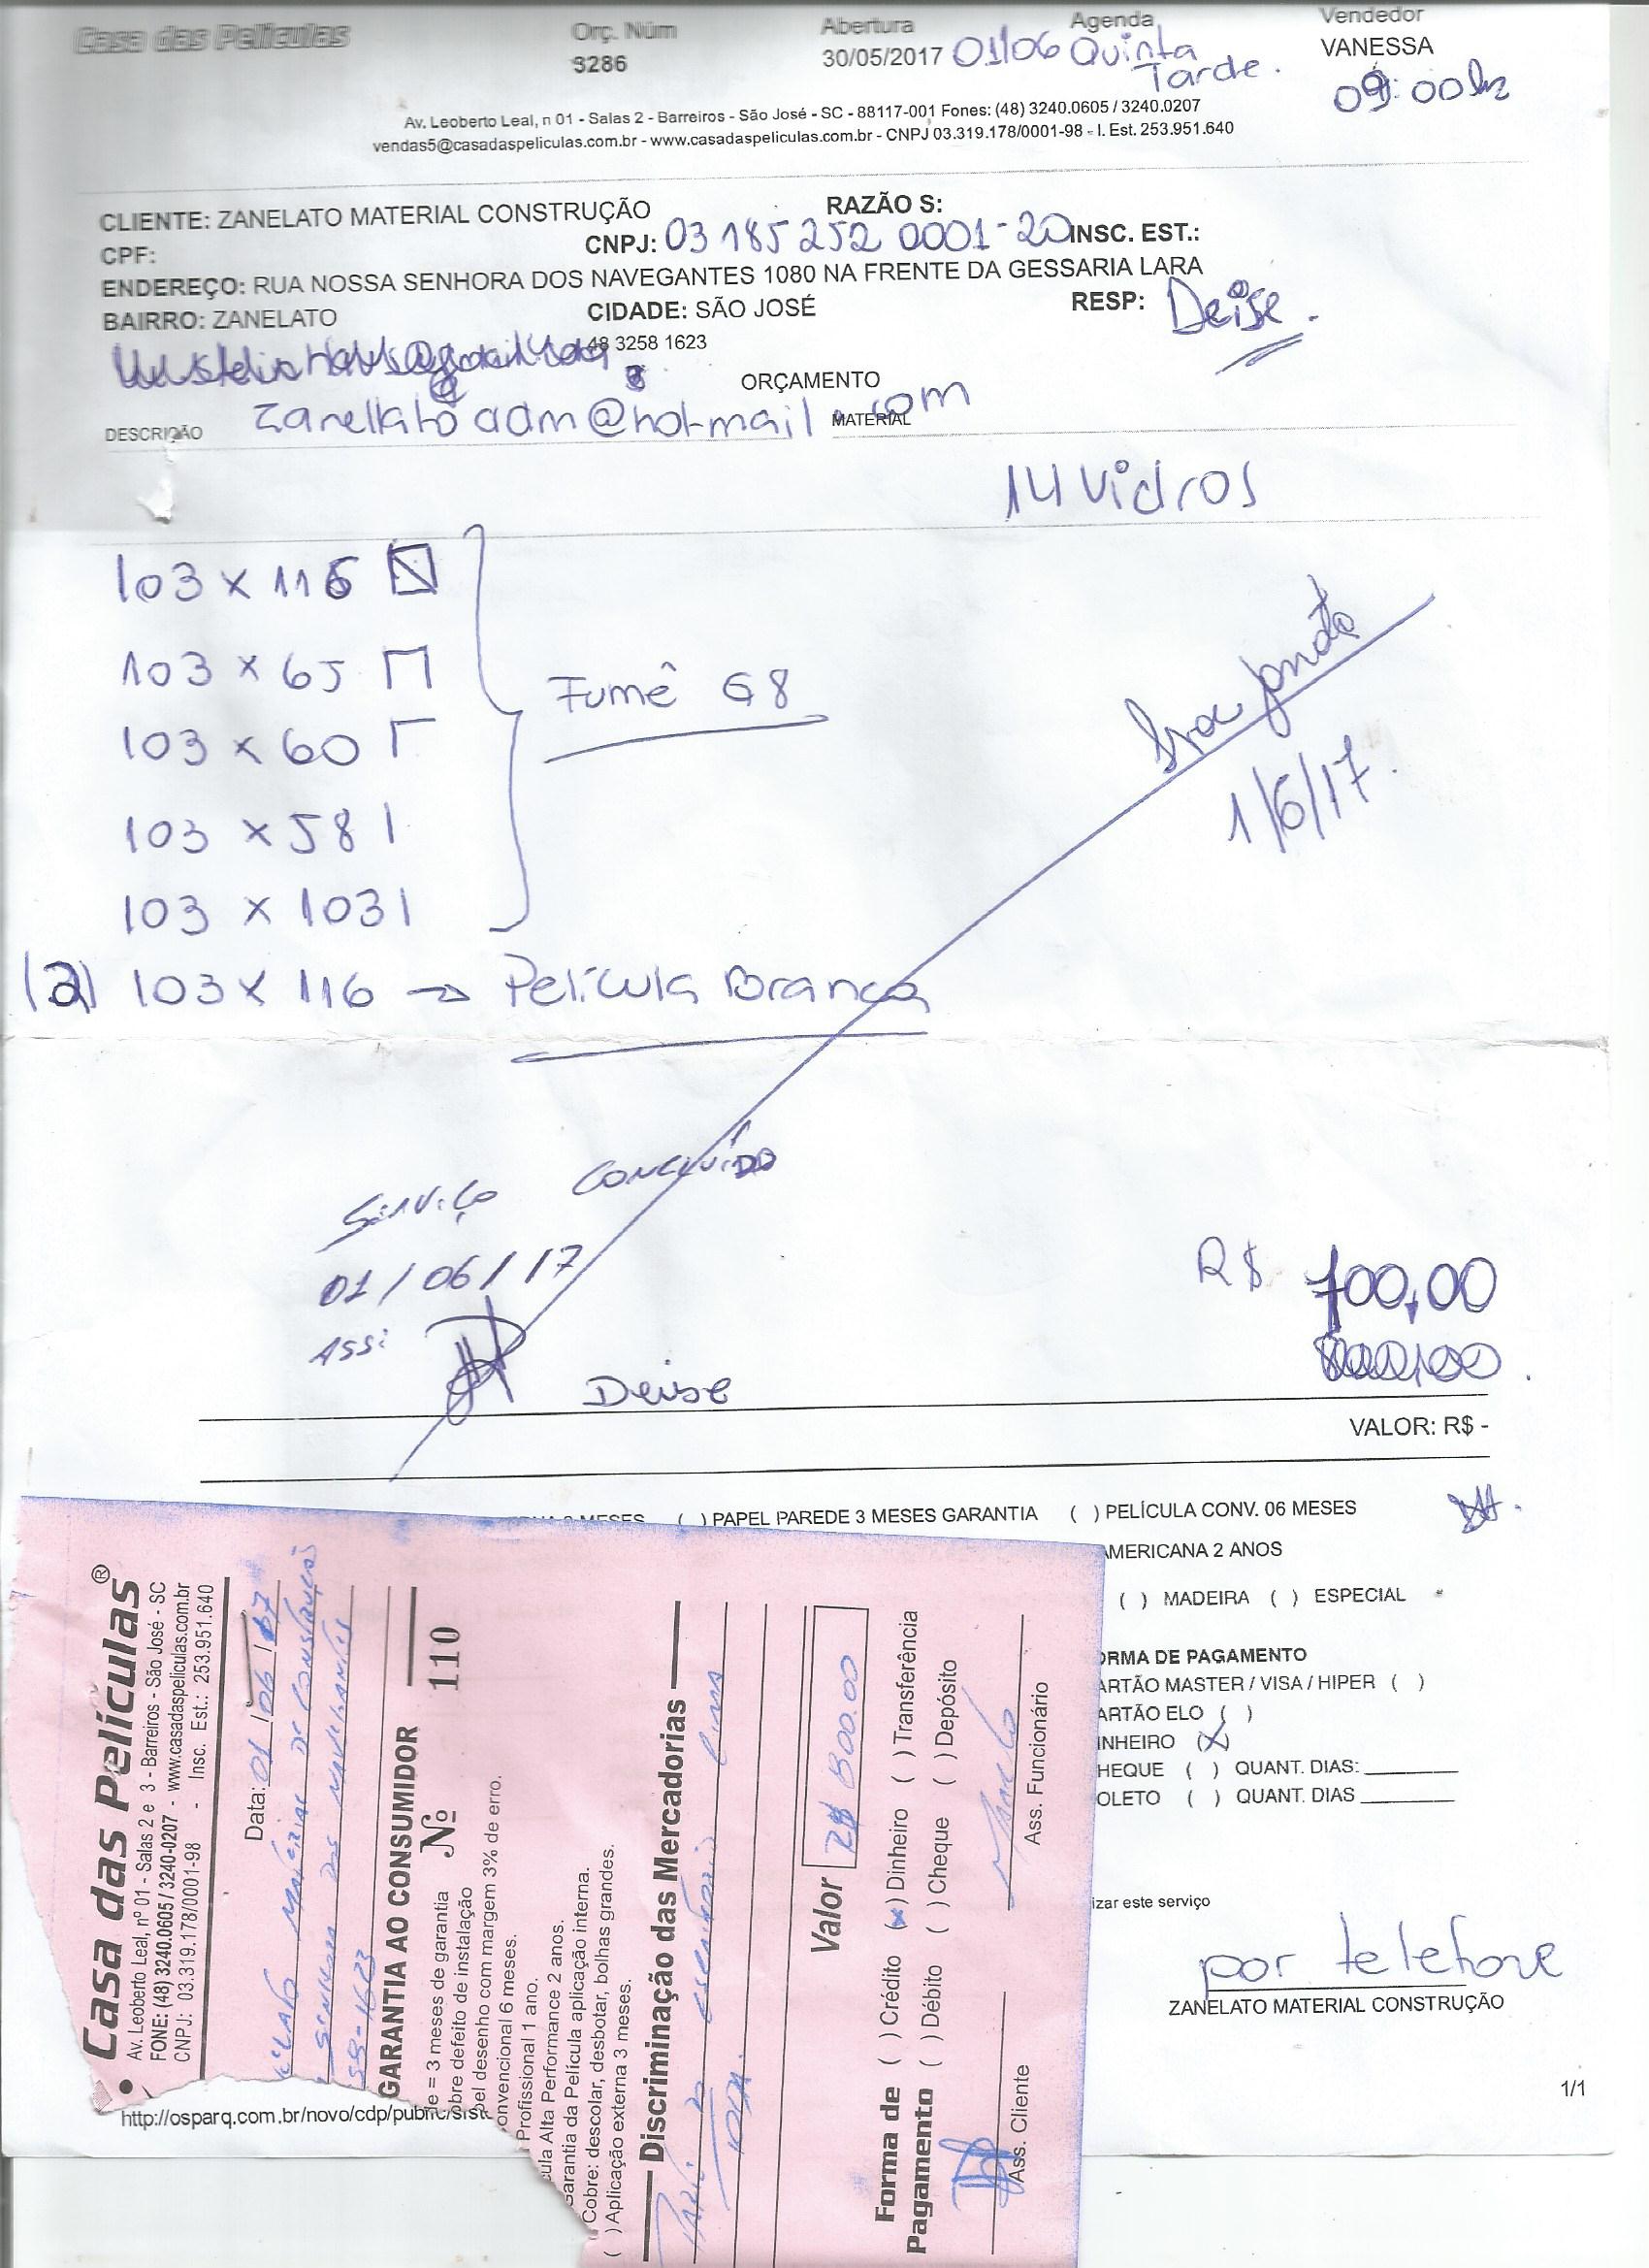 Casa das Películas
Orç. Núm
3286
Abertura
30/05/2017
Agenda
01/06 Quinta
Tarde.
Vendedor
VANESSA
09:00hs
Av. Leoberto Leal, n 01 - Salas 2 - Barreiros - São José - SC - 88117-001 Fones: (48) 3240.0605 / 3240.0207
vendas5@casadaspeliculas.com.br - www.casadaspeliculas.com.br - CNPJ 03.319.178/0001-98 - I. Est. 253.951.640
CLIENTE: ZANELATO MATERIAL CONSTRUÇÃO RAZÃO S:
CPF: CNPJ: 03 185 252 0001-20 INSC. EST.:
ENDEREÇO: RUA NOSSA SENHORA DOS NAVEGANTES 1080 NA FRENTE DA GESSARIA LARA
BAIRRO: ZANELATO CIDADE: SÃO JOSÉ RESP: Deise.
48 3258 1623
ORÇAMENTO
zanellato adm@hotmail.com
DESCRIÇÃO MATERIAL
14 Vidros
103 x 116
103 x 65
103 x 60
103 x 58 1
103 x 103 1
Fumê G8
(2) 103 x 116 → Película Branca
1/6/17.
Serviço Concluído
01/06/17
Ass:
Deise
R$ 700,00
VALOR: R$ -
MESES ( ) PAPEL PAREDE 3 MESES GARANTIA ( ) PELÍCULA CONV. 06 MESES
AMERICANA 2 ANOS
( ) MADEIRA ( ) ESPECIAL
ORMA DE PAGAMENTO
ARTÃO MASTER / VISA / HIPER ( )
ARTÃO ELO ( )
INHEIRO (X)
HEQUE ( ) QUANT. DIAS:
OLETO ( ) QUANT. DIAS
izar este serviço
por telefone
ZANELATO MATERIAL CONSTRUÇÃO
1/1
http://osparq.com.br/novo/cdp/public/sist
Casa das Películas®
Av. Leoberto Leal, nº 01 - Salas 2 e 3 - Barreiros - São José - SC
FONE: (48) 3240.0605 / 3240-0207 - www.casadaspeliculas.com.br
CNPJ: 03.319.178/0001-98 - Insc. Est.: 253.951.640
Data: 01/06/17
Material de Construção
Senhora dos Navegantes
58-1623
GARANTIA AO CONSUMIDOR Nº 110
e = 3 meses de garantia
obre defeito de instalação
pel desenho com margem 3% de erro.
onvencional 6 meses.
Profissional 1 ano.
cula Alta Performance 2 anos.
Garantia da Película aplicação interna.
Cobre: descolar, desbotar, bolhas grandes.
( ) Aplicação externa 3 meses.
Discriminação das Mercadorias
Valor R$ 800.00
Forma de Pagamento
( ) Crédito (x) Dinheiro ( ) Transferência
( ) Débito ( ) Cheque ( ) Depósito
Ass. Cliente
Ass. Funcionário